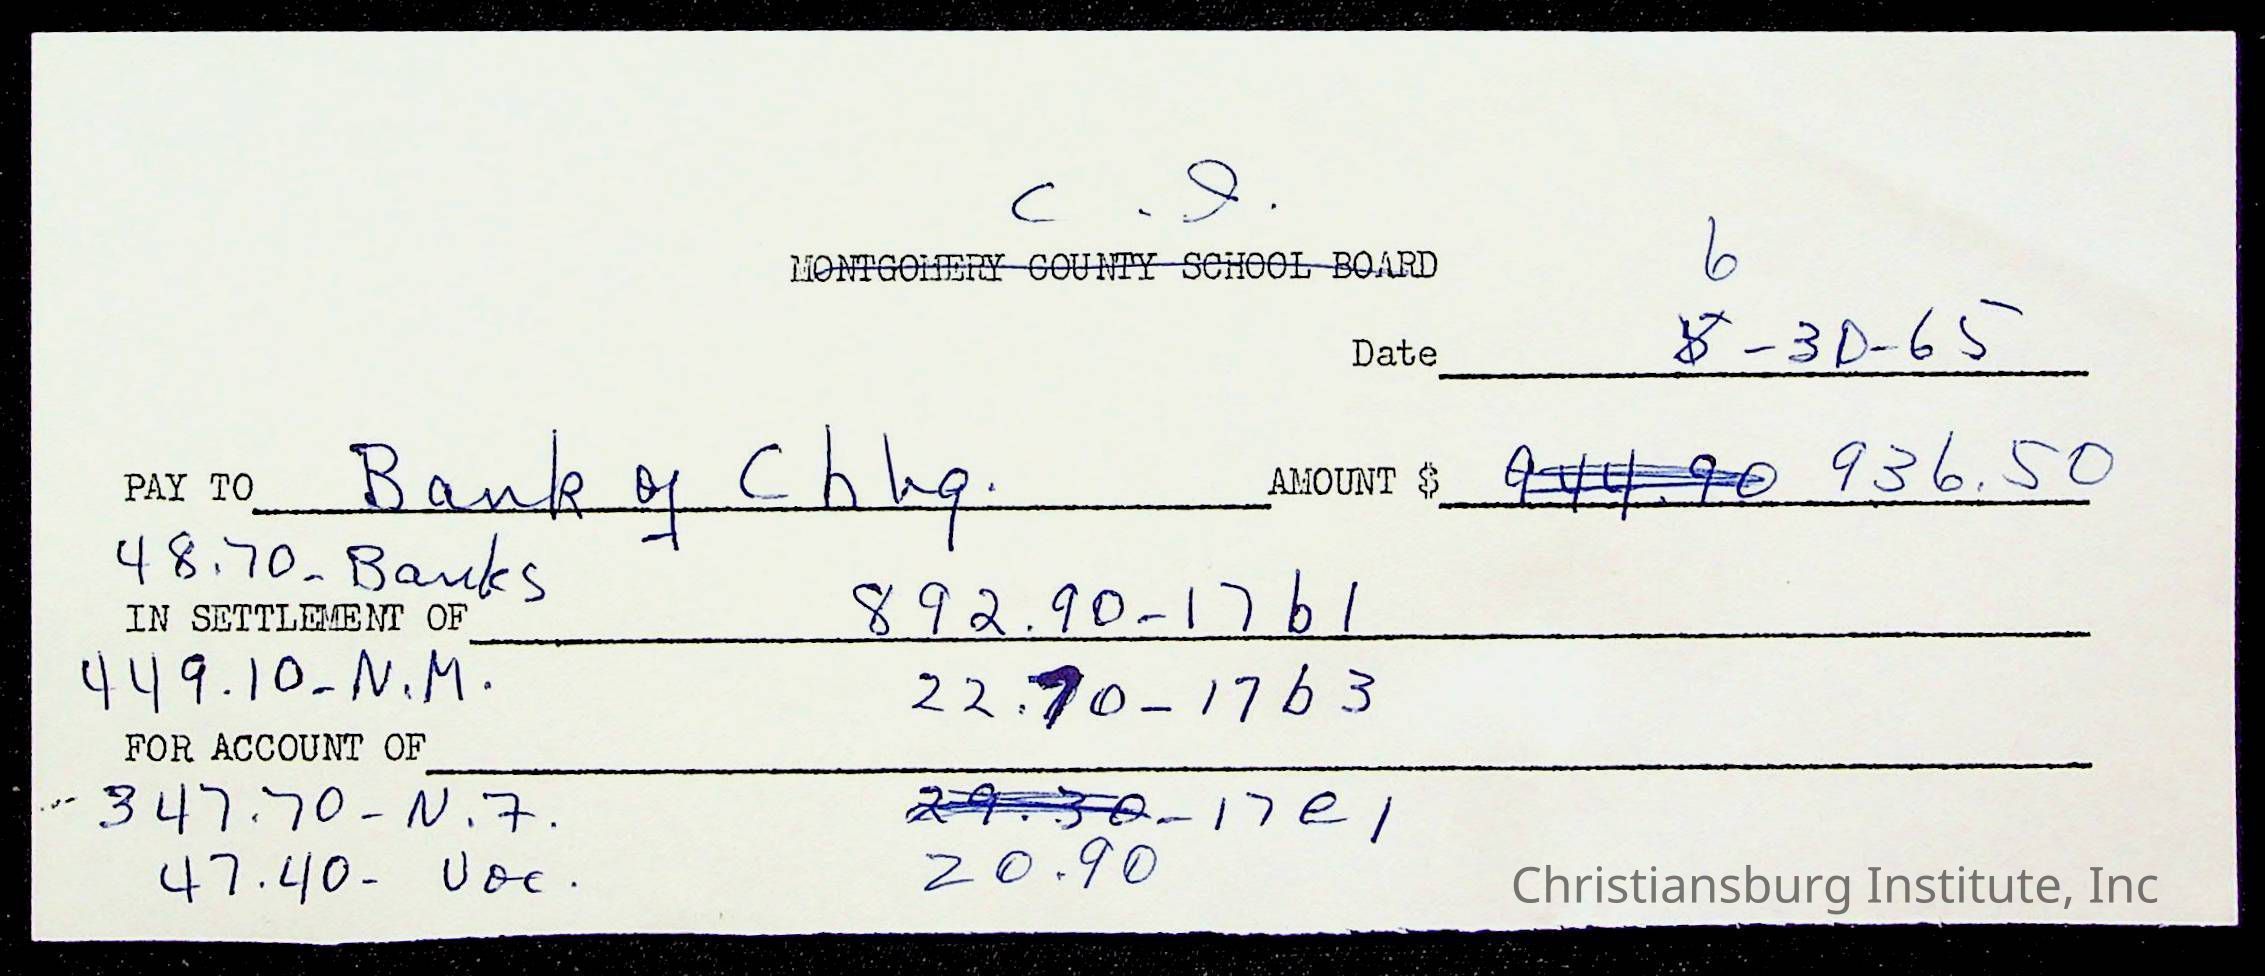 C. I.
MONTGOMERY COUNTY SCHOOL BOARD
6
Date 5-30-65
PAY TO Bank of Cbbg. AMOUNT $ 944.90 936.50
48.70-Banks
IN SETTLEMENT OF 892.90-17b1
449.10-N.M. 22.70-17b3
FOR ACCOUNT OF
347.70-N.F. 29.30-17e1
47.40- Voc. 20.90
Christiansburg Institute, Inc